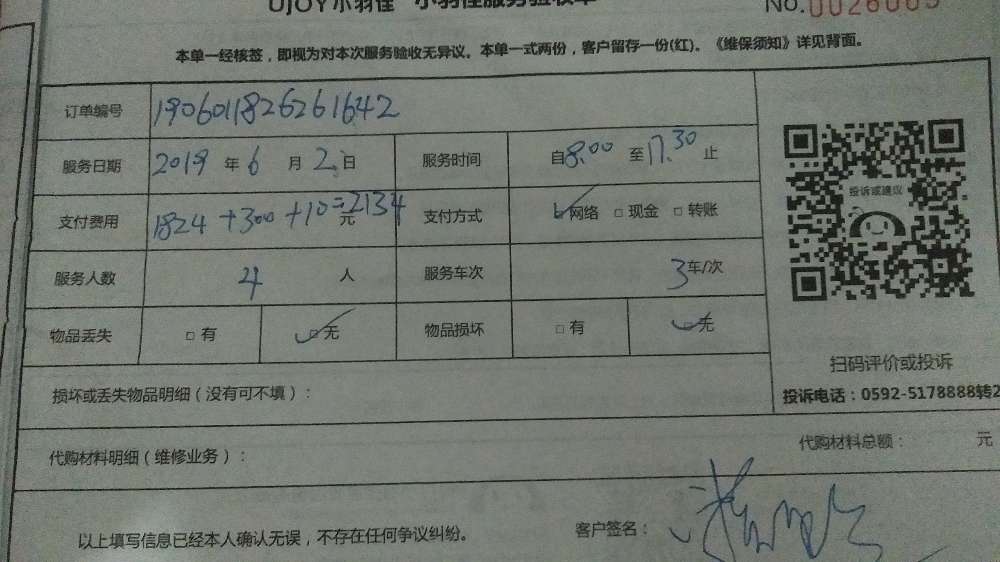 UJOY小羽佳 小羽佳服务验收单
No.0026005
本单一经核签，即视为对本次服务验收无异议。本单一式两份，客户留存一份(红)。《维保须知》详见背面。
订单编号 1906011826261642
服务日期 2019 年 6 月 2 日 服务时间 自8:00 至17.30 止
支付费用 1824+300+10=2134 元 支付方式 □网络 □现金 □转账
投诉或建议
服务人数 4 人 服务车次 3 车/次
物品丢失 □有 □无 物品损坏 □有 □无
扫码评价或投诉
损坏或丢失物品明细（没有可不填）：
投诉电话：0592-5178888转2
代购材料明细（维修业务）： 代购材料总额： 元
以上填写信息已经本人确认无误，不存在任何争议纠纷。 客户签名：